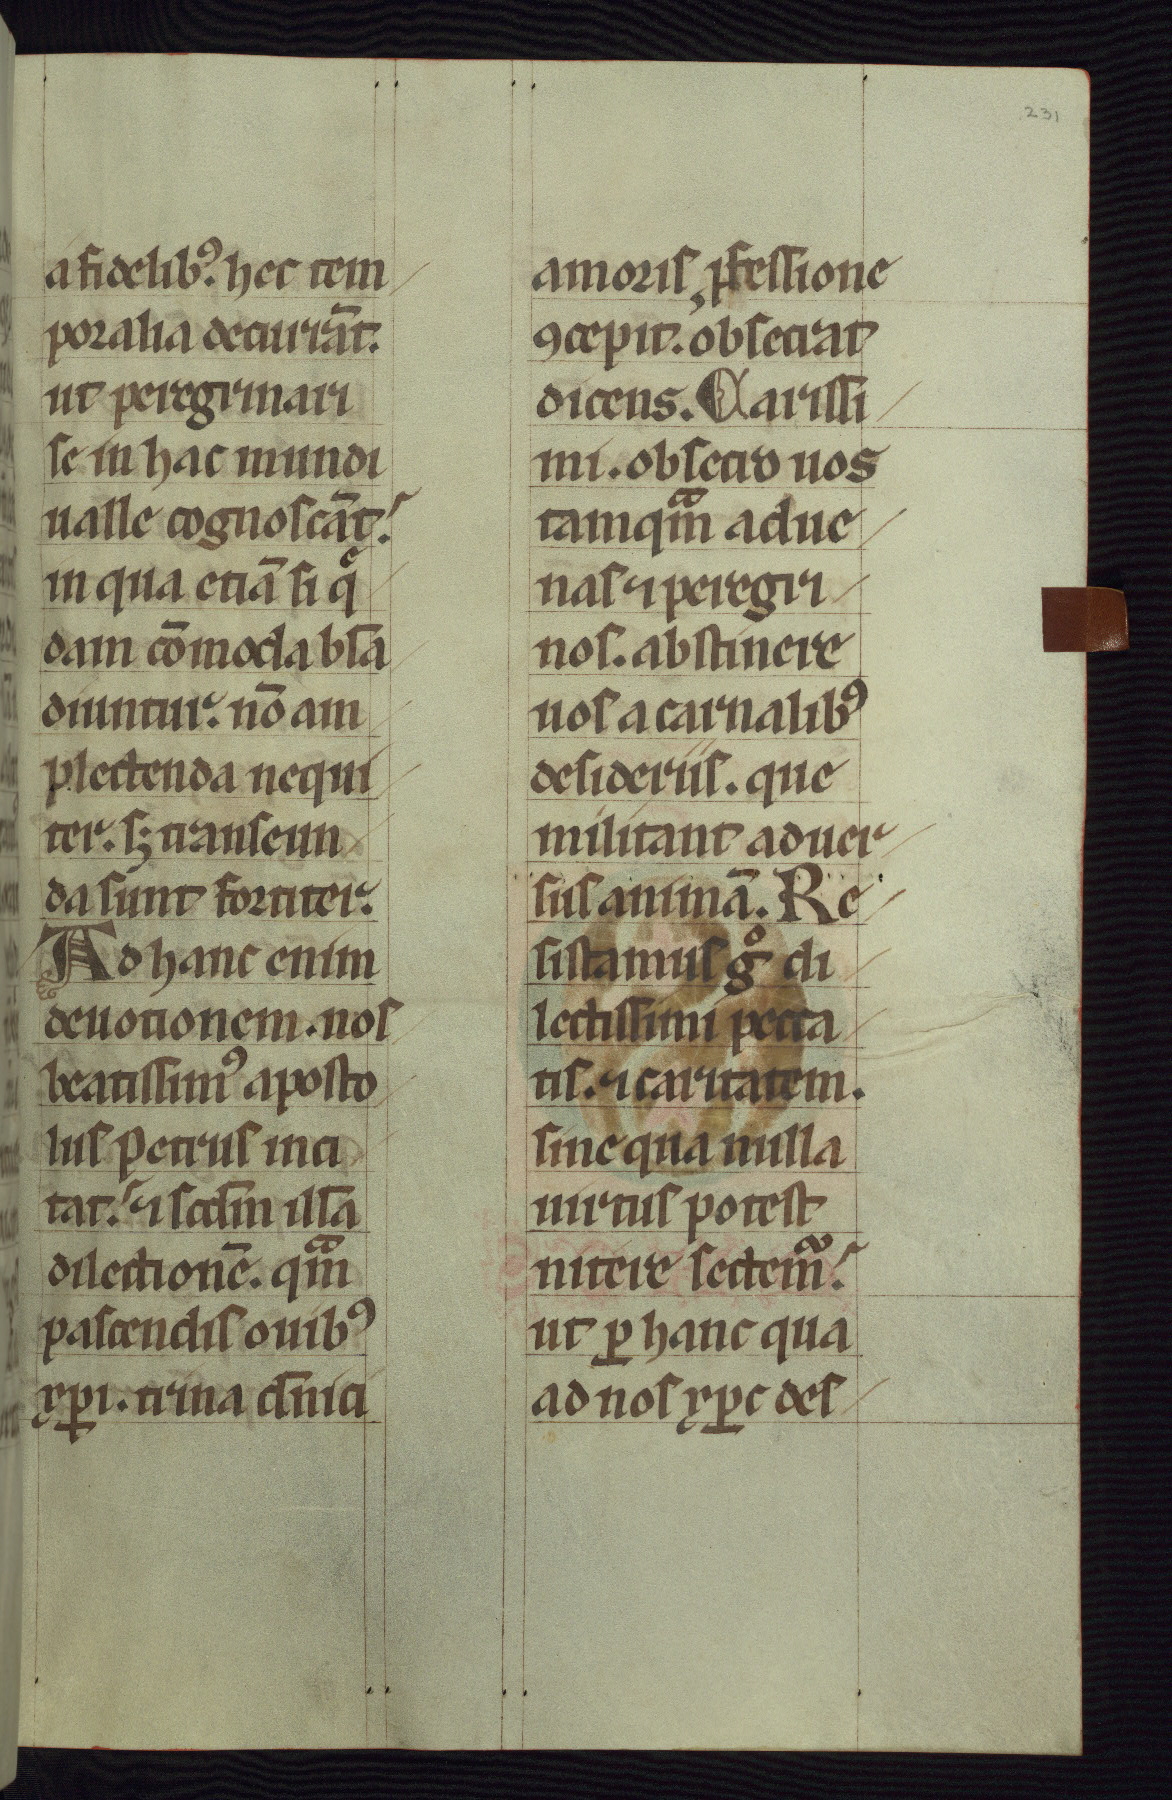 231
a fidelibꝰ. hec tem
poralia decurrāt.
ut peregrinari
se in hac mundi
ualle cognoscāt.
in qua etiā si qͤ
dam cōmoda bla
diuntur. nō am
plectenda nequi
ter. sꝫ transeun
da sunt fortiter.
Ad hanc enim
deuotionem. nos
beatissimꝰ aposto
lus petrus inci
tat. ⁊ scd̄m illā
dilectionē. qᷓm
pascendis ouibꝰ
xp̄i. trina dn̄ici
amoris ꝓfessione
ꝯcepit. obsecrat
dicens. Carissi
mi. obsecro uos
tamqᷓm adue
nas ⁊ peregri
nos. abstinere
uos a carnalibꝰ
desideriis. que
militant aduer
sus animā. Re
sistamus gͦ di
lectissimi pecca
tis. ⁊ caritatem.
sine qua nulla
uirtus potest
nitere sectem᷑.
ut ꝑ hanc qua
ad nos xp̄c des